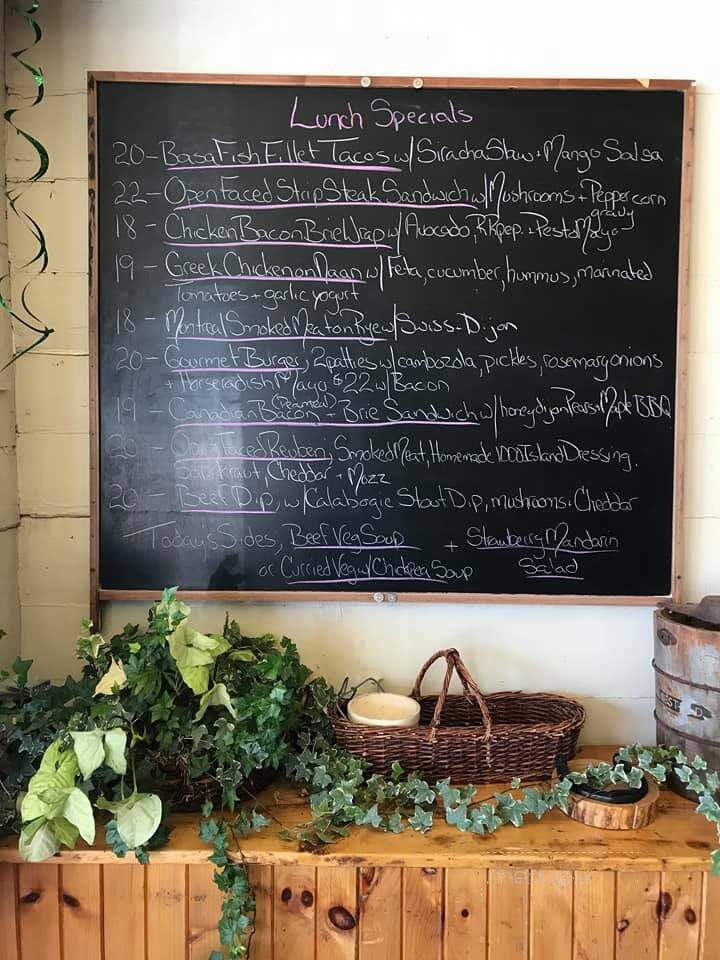 Lunch Specials
20 - Basa Fish Fillet Tacos w/ Siracha Slaw + Mango Salsa
22 - Open Faced Strip Steak Sandwich w/ Mushrooms + Peppercorn
gravy
18 - Chicken Bacon Brie Wrap w/ Avocado, R.R.pep. + Pesto Mayo
19 - Greek Chicken on Naan w/ Feta, cucumber, hummus, marinated
Tomatoes + garlic yogurt
18 - Montreal Smoked Meat on Rye w/ Swiss + Dijon
20 - Gourmet Burger, 2 patties w/ cambozola, pickles, rosemary onions
+ Horseradish Mayo $22 w/ Bacon
(Peameal)
19 - Canadian Bacon + Brie Sandwich w/ honey dijon Pears + Maple BBQ
20 - Open Faced Reuben, Smoked Meat, Homemade 1000 Island Dressing,
Sauerkraut, Cheddar + Mozz
20 - Beef Dip, w/ Calabogie Stout Dip, mushrooms + Cheddar
Today's Sides, Beef Veg Soup + Strawberry Mandarin
or Curried Veg w/ Chickpea Soup Salad